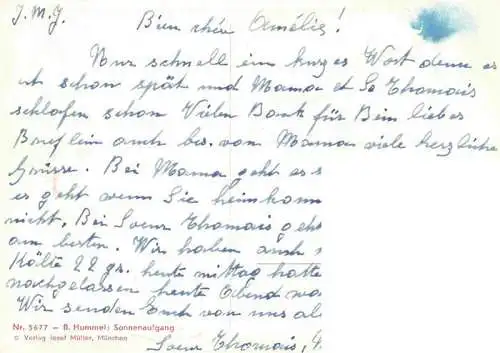 J. M. J.
Bien chère Amélie!
Nur schnell ein kurzes Wort denn es
ist schon spät und Mama et So Thomais
schlafen schon Vielen Dank für Dein liebes
Brieflein auch bes. von Mama viele herzliche
Grüsse. Bei Mama geht es s
es geht wenn Sie heimkom
nicht. Bei Soeur Thomais geht
am besten. Wir haben auch
Kälte 22 gr. heute mittag hatte
nachgelassen heute Abend wa
Wir senden Euch von uns al
Soeur Thomais,
Nr. 5677 — B. Hummel: Sonnenaufgang
© Verlag Josef Müller, München